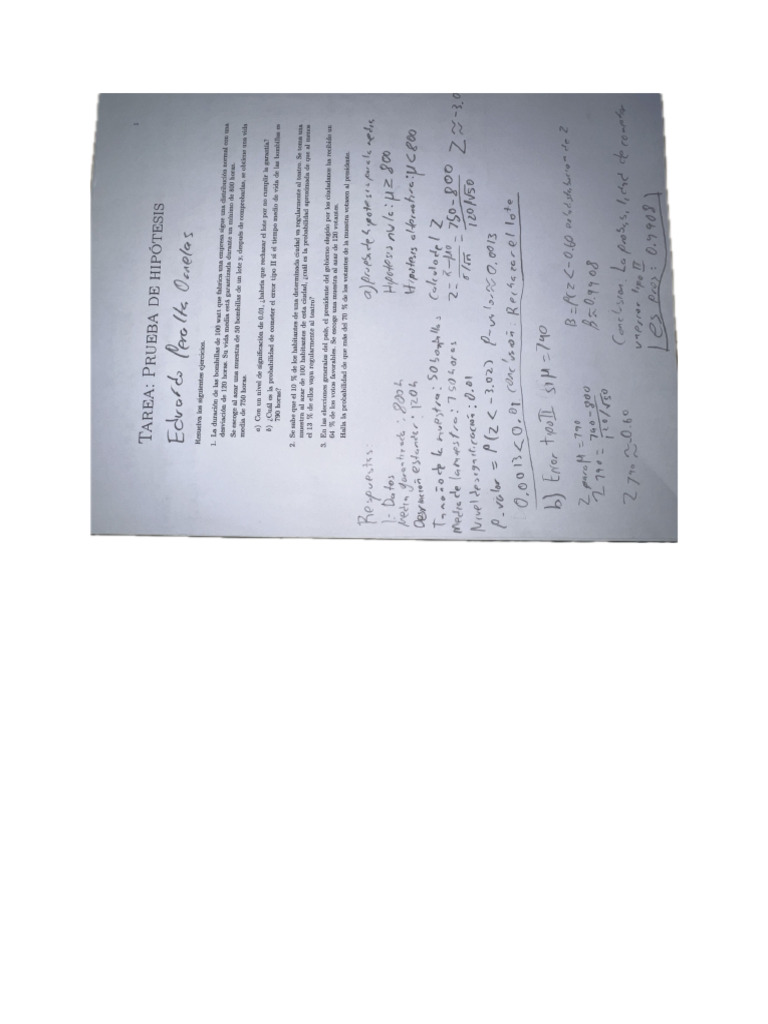 1
TAREA: PRUEBA DE HIPÓTESIS
Eduardo Peralta Ornelas
Resuelva los siguientes ejercicios.
1. La duración de las bombillas de 100 watt que fabrica una empresa sigue una distribución normal con una
desviación de 120 horas. Su vida media está garantizada durante un mínimo de 800 horas.
Se escoge al azar una muestra de 50 bombillas de un lote y, después de comprobarlas, se obtiene una vida
media de 750 horas.
a) Con un nivel de significación de 0.01, ¿habría que rechazar el lote por no cumplir la garantía?
b) ¿Cuál es la probabilidad de cometer el error tipo II si el tiempo medio de vida de las bombillas es
790 horas?
2. Se sabe que el 10 % de los habitantes de una determinada ciudad va regularmente al teatro. Se toma una
muestra al azar de 100 habitantes de esta ciudad, ¿cuál es la probabilidad aproximada de que al menos
el 13 % de ellos vaya regularmente al teatro?
3. En las elecciones generales del país, el presidente del gobierno elegido por los ciudadanos ha recibido un
64 % de los votos favorables. Se escoge una muestra al azar de 120 votantes.
Halla la probabilidad de que más del 70 % de los votantes de la muestra votasen al presidente.
Respuestas:
1.- Datos
Media garantizada: 800h
Desviación estandar: 120h
Tamaño de la muestra: 50 bombillas
Media de la muestra: 750 horas
Nivel de significación: 0.01
a) prueba de hipotesis para la media
Hipotesis nula: μ ≥ 800
Hipotesis alternativa: μ < 800
Calculo del Z
Z = x-μ0 / σ/√n = 750-800 / 120/√50 Z ≈ -3.0
P-valor = P(Z < -3.02) P-valor ≈ 0.0013
0.0013 < 0.01 conclusión Rechazar el lote
b) Error tipo II si μ = 790
Z para μ = 790
Z 790 = 790-800 / 120/√50
Z 790 ≈ 0.60
B = P(Z < -0.60
B ≈ 0.9908
Conclusion: La de cometer
un error tipo II
es 0.9908